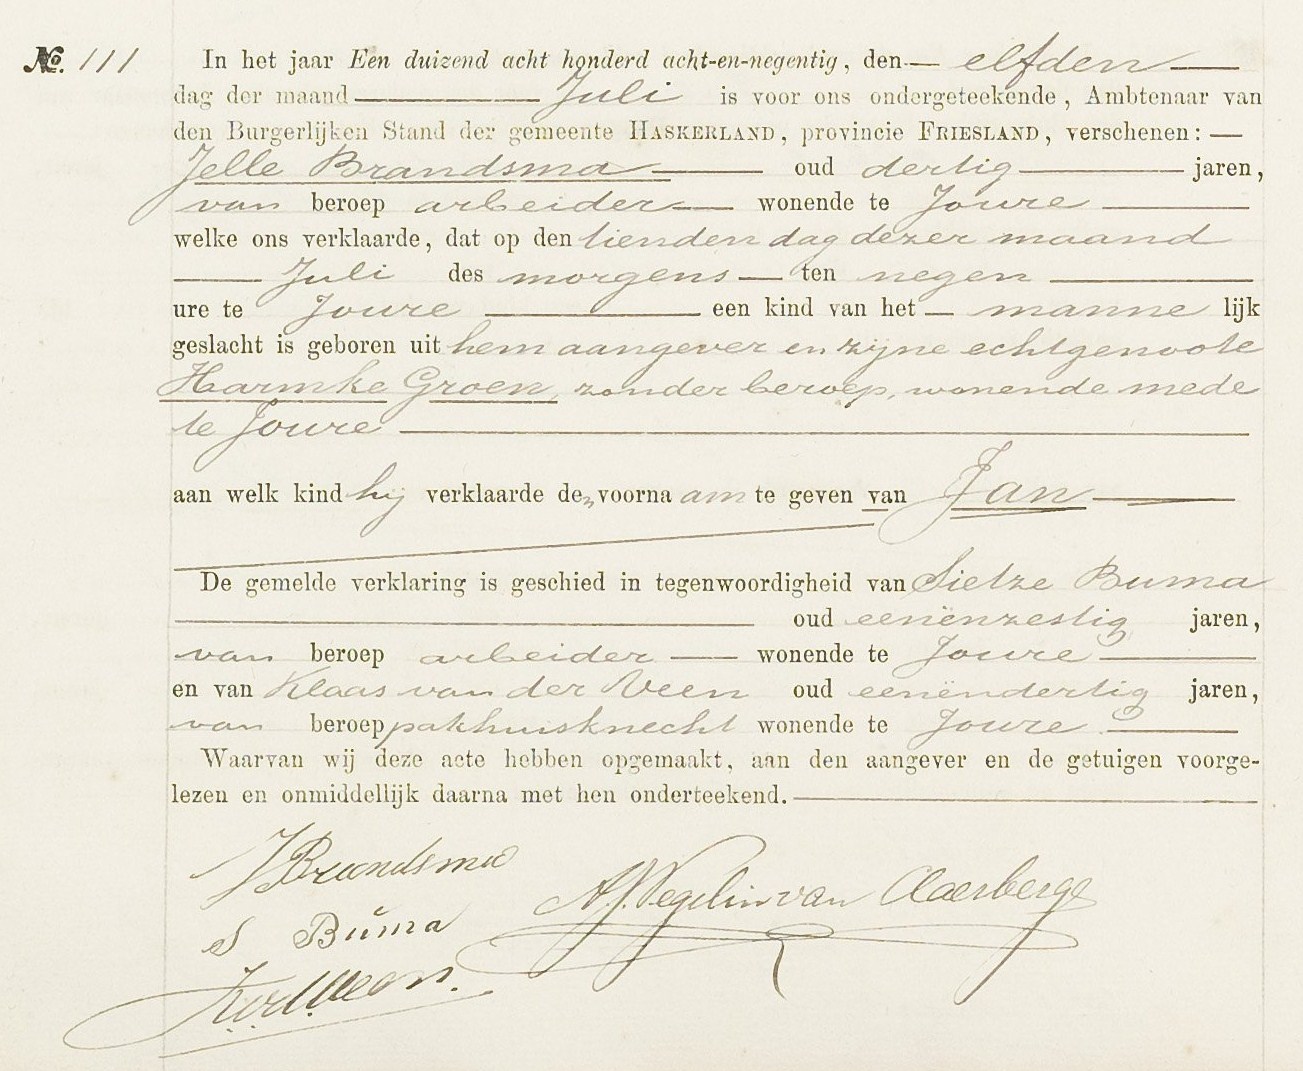 No. 111 In het jaar Een duizend acht honderd acht-en-negentig, den elfden
dag der maand Juli is voor ons ondergeteekende, Ambtenaar van
den Burgerlijken Stand der gemeente HASKERLAND, provincie FRIESLAND, verschenen:
Jelle Brandsma oud dertig jaren,
van beroep arbeider wonende te Joure
welke ons verklaarde, dat op den tienden dag dezer maand
Juli des morgens ten negen
ure te Joure een kind van het mannelijk
geslacht is geboren uit hem aangever en zijne echtgenoote
Harmke Groen, zonder beroep, wonende mede
te Joure
aan welk kind hij verklaarde den voornaam te geven van Jan
De gemelde verklaring is geschied in tegenwoordigheid van Sietze Buma
oud eenënzestig jaren,
van beroep arbeider wonende te Joure
en van Klaas van der Veen oud eenëndertig jaren,
van beroep pakhuisknecht wonende te Joure
Waarvan wij deze acte hebben opgemaakt, aan den aangever en de getuigen voorge-
lezen en onmiddellijk daarna met hen onderteekend.
J Brandsma
A. J. Vegelin van Claerberge
S Buma
K. v. d. Veen.